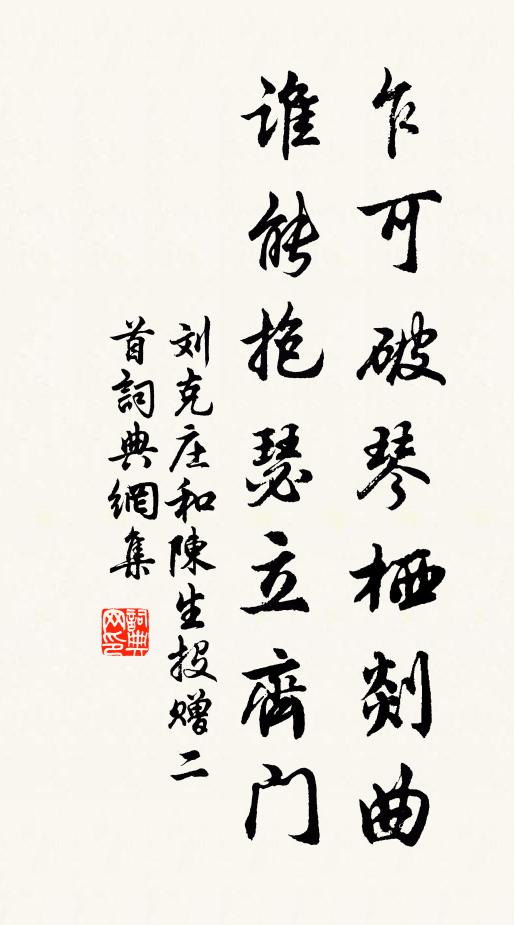 乍可破琴栖剡曲
谁能抱瑟立齊门
刘克庄和陳生投赠二
首詞典網集
詞典
网印